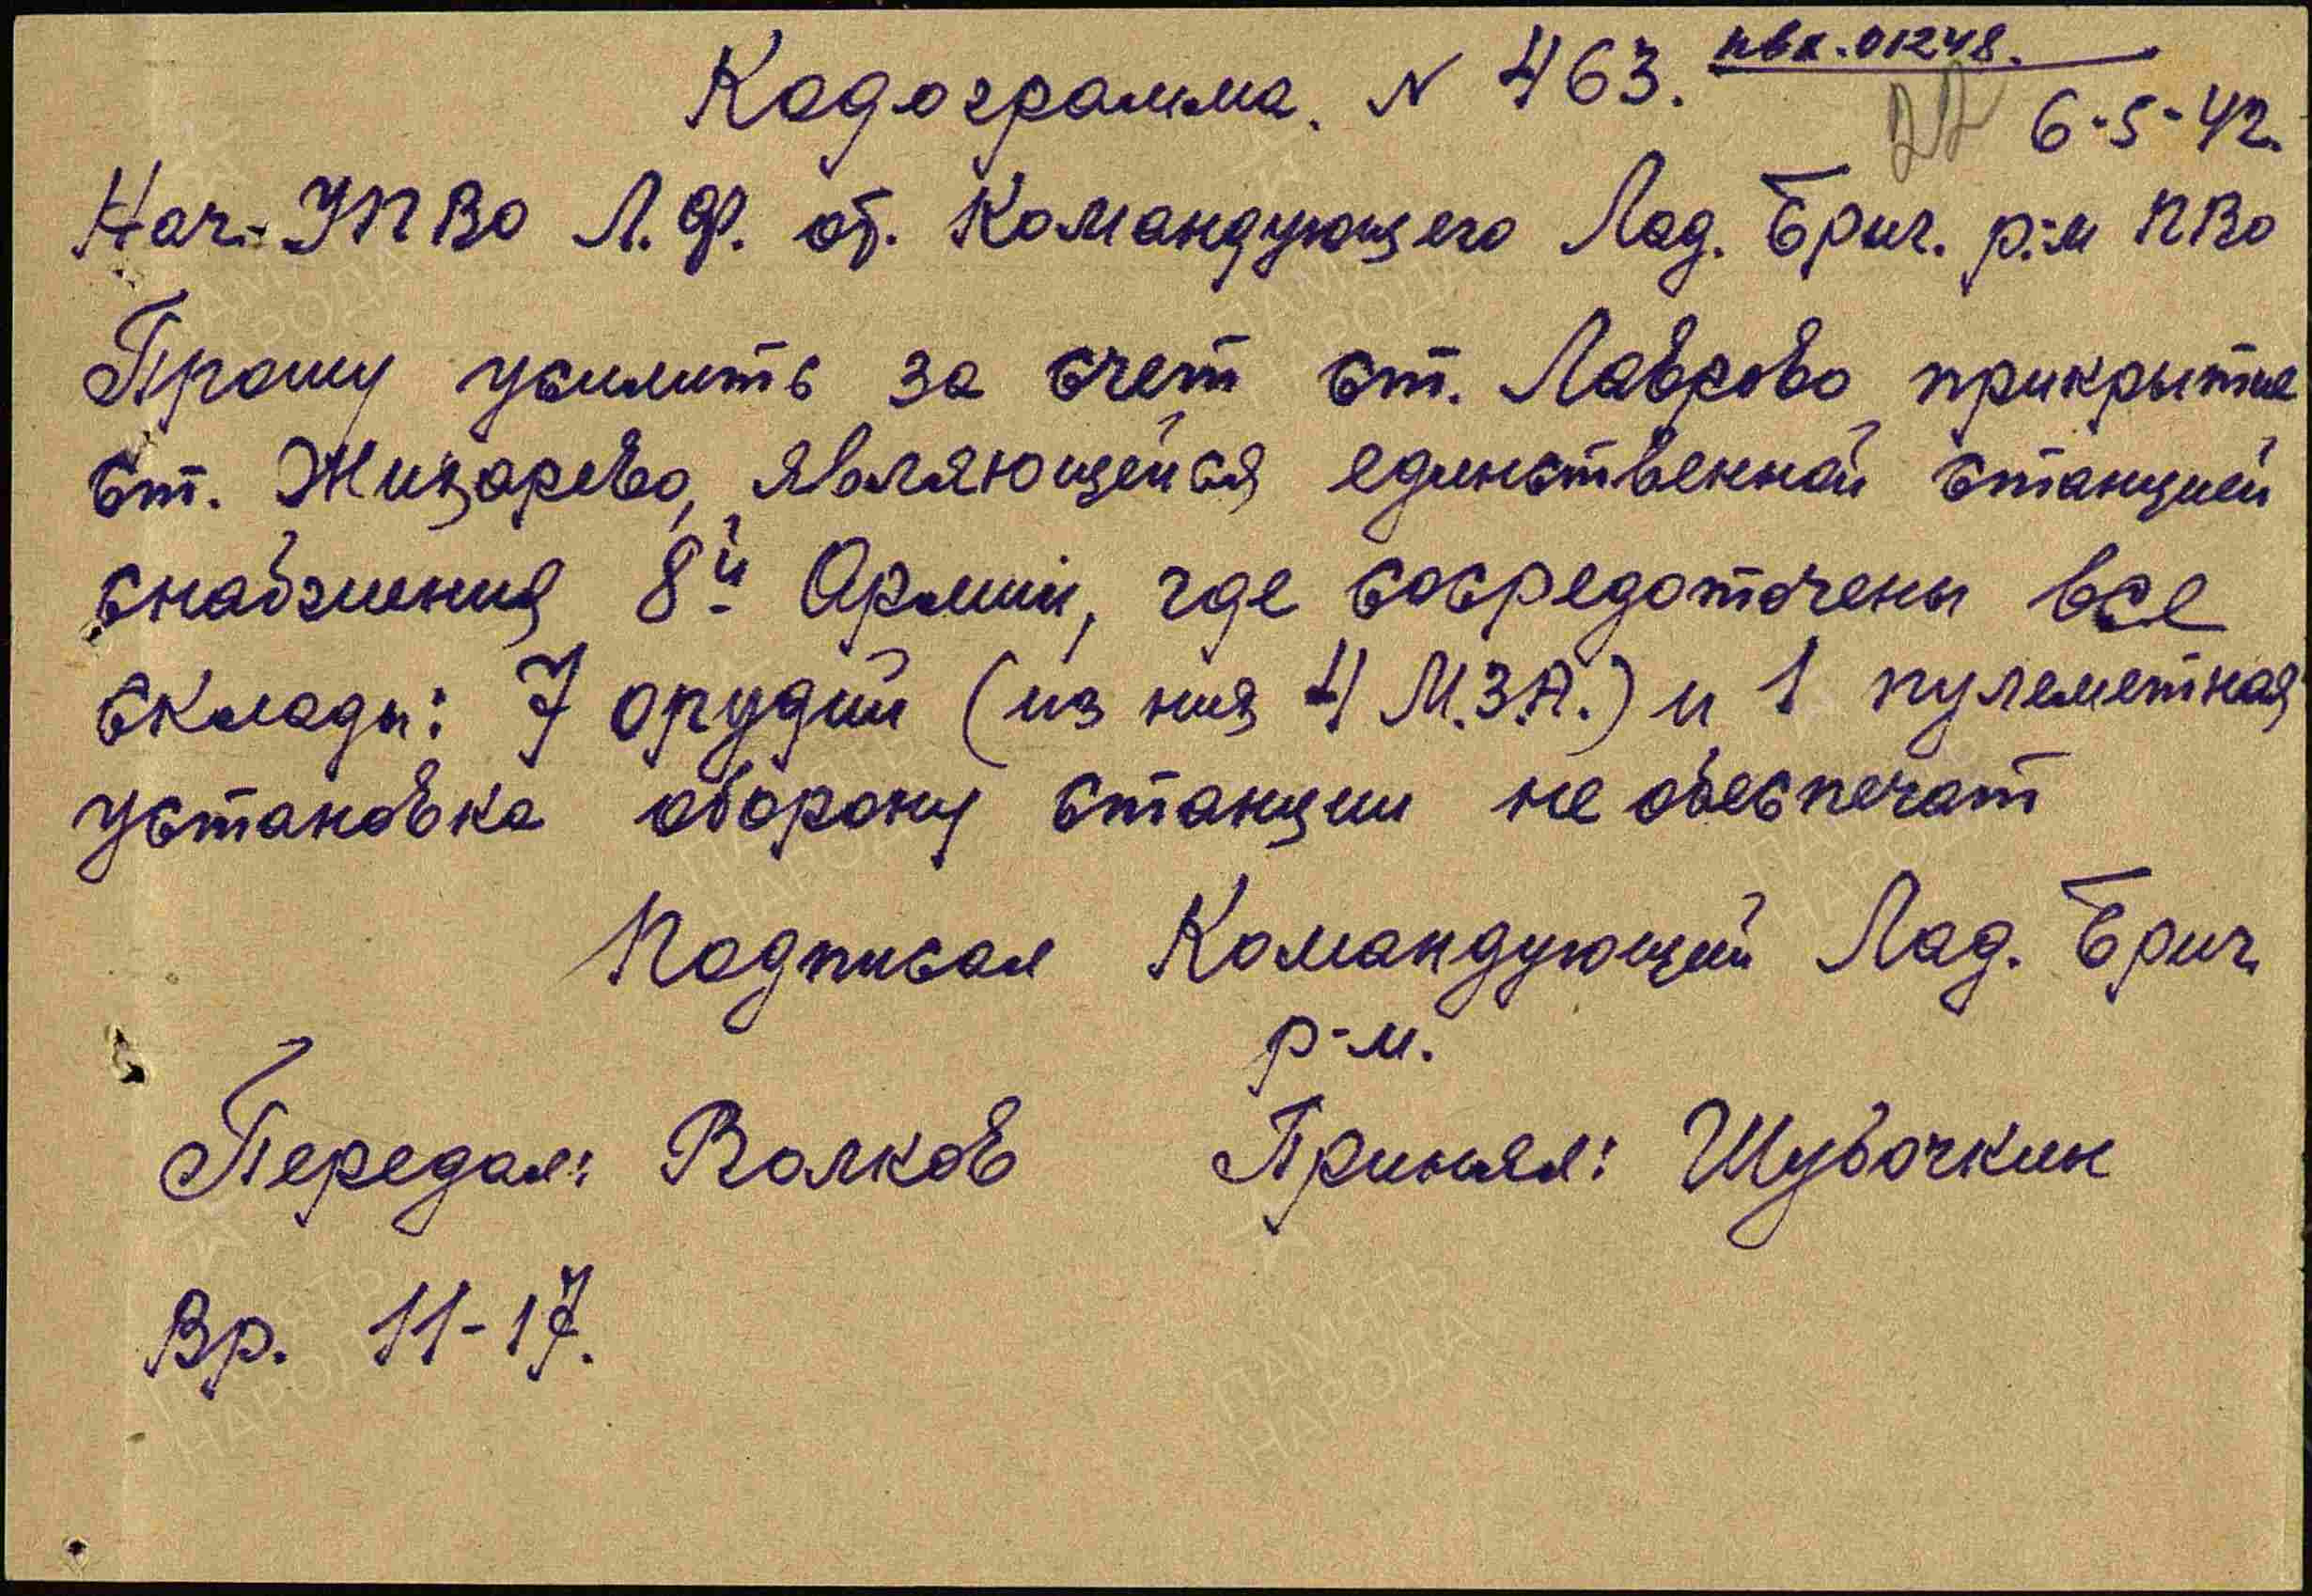 Кодограмма. N 463. пвх. 01248.
22 6-5-42.
Нач. УПВО Л.Ф. от. Командующего Лад. Бриг. р-м ПВО
Прошу усилить за счет ст. Лаврово прикрытие
ст. Жихарево, являющейся единственной станцией
снабжения 8й Армии, где сосредоточены все
склады: 7 орудий (из них 4 М.З.А.) и 1 пулеметная
установка оборону станции не обеспечат
Подписал Командующий Лад. Бриг.
р-м.
Передал: Волков Принял: Шубочкин
Вр. 11-17.
ПАМЯТЬ
НАРОДА